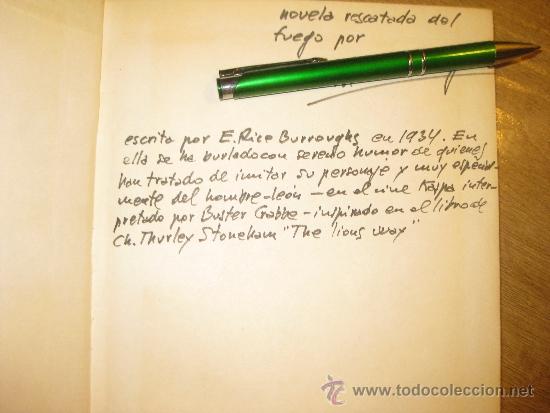 novela rescatada del
fuego por
escrita por E. Rice Burroughs en 1934. En
ella se ha burlado con sereno humor de quienes
han tratado de imitar su personaje y muy especial-
mente del hombre-león - en el cine Kaspa inter-
pretado por Buster Crabbe - inspirado en el libro de
Ch. Thurley Stoneham "The lions way"
© www.todocoleccion.net